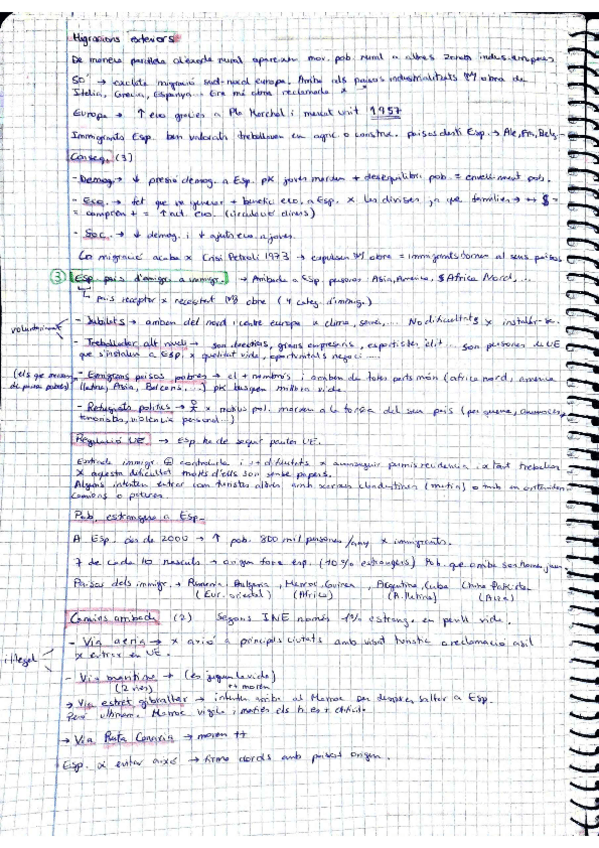 Migracions exteriors
De manera paral·lela al èxode rural apareixen mov. pob. rural a altres zones indus. europees
50' → exclote migració sud-nord europa. Arriba als països industrialitzats obra de
Itàlia, Grècia, Espanya... Era mà obra reclamada
Europa → ↑ eco gràcies a Pla Marshall i mercat unit 1957
Immigrants Esp. ben valorats treballaven en agric. o construc. països destí Esp. → Ale, Fra, Belg...
Conseq. (3)
- Demog. → ↓ presió demog. a Esp. pk joves marxen + desequilibri pob. = envelliment pob.
- Eco. → fet que va generar + benefici eco. a Esp. x les divises, ja que famílies → ++ $ =
= compren + = ↑ act. eco. (circulació diners)
- Soc. → ↓ demog. i ↓ joves.
La migració acaba x Crisi Petroli 1973 → expulsen obra = immigrants tornen al seus països
③ Esp. país d'emigr. a immigr. → Arribada a Esp. persones Asia, Amèrica, Àfrica Nord, ...
país receptor x receptent obra (4 categ. d'immigr.)
voluntàriament
- Jubilats → arriben del nord i centre europa x clima, ... No dificultats x instalar-se.
- Treballador alt nivell → són directius, grans empresaris, esportistes èlit ... són persones de UE
que s'instalen a Esp. x qualitat vida, oportunitats negoci ...
(els que venen de països pobres)
- Emigrans països pobres → el + nombrós i arriben de totes parts món (àfrica nord, amèrica
llatina, Asia, Balcans, ...) pk busquen millor vida.
- Refugiats polítics → x motius pol. marxen a la força del seu país (per guerra,
terroristes, violència personal...)
Regulació UE → Esp. ha de seguir pautes UE.
Entrada immigr. controlada i → dificultats x aconseguir permís residència i x tant treballar
X aquesta dificultat molts d'ells son sense papers.
Alguns intenten entrar com turistes altres amb xarxes clandestines (màfia) o amb
camions o pateres.
Pob. estrangera a Esp.
A Esp. des de 2000 → ↑ pob. 800 mil persones/any x immigrants.
7 de cada 10 nascuts → origen fora esp. (10% estrangers) Pob. que arriba son homes joves
Països dels immigr. → Rumania Bulgaria, Marroc, Guinea, Argentina, Cuba China Pakistan
(Eur. oriental) (Àfrica) (A. llatina) (Asia)
Camins arribada (2) Segons INE només 1% estrang. en perill vida.
il·legal
- Via aèria → x avió a principals ciutats amb visat turístic o reclamació asil
x entrar en UE.
- Via marítima → (es juguen la vida)
(2 vies) ++ moren
→ Via estret gibraltar → intenten arribar al Marroc per després saltar a Esp.
Però últimam. Marroc vigila i només els és + difícil.
→ Via Ruta Canaria → moren ++
Esp. x evitar això → firma acords amb països origen.